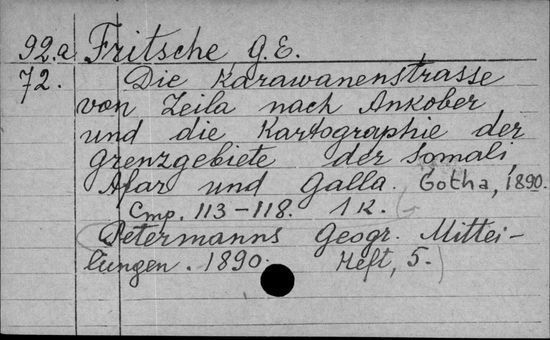 92.a Fritsche G.E.
72. Die Karawanenstrasse
von Zeila nach Ankober
und die Kartographie der
Grenzgebiete der Somali,
Afar und Galla. Gotha, 1890.
Cmp. 113-118. 1 K.
(Petermanns Geogr. Mittei-
lungen. 1890. Heft, 5.)